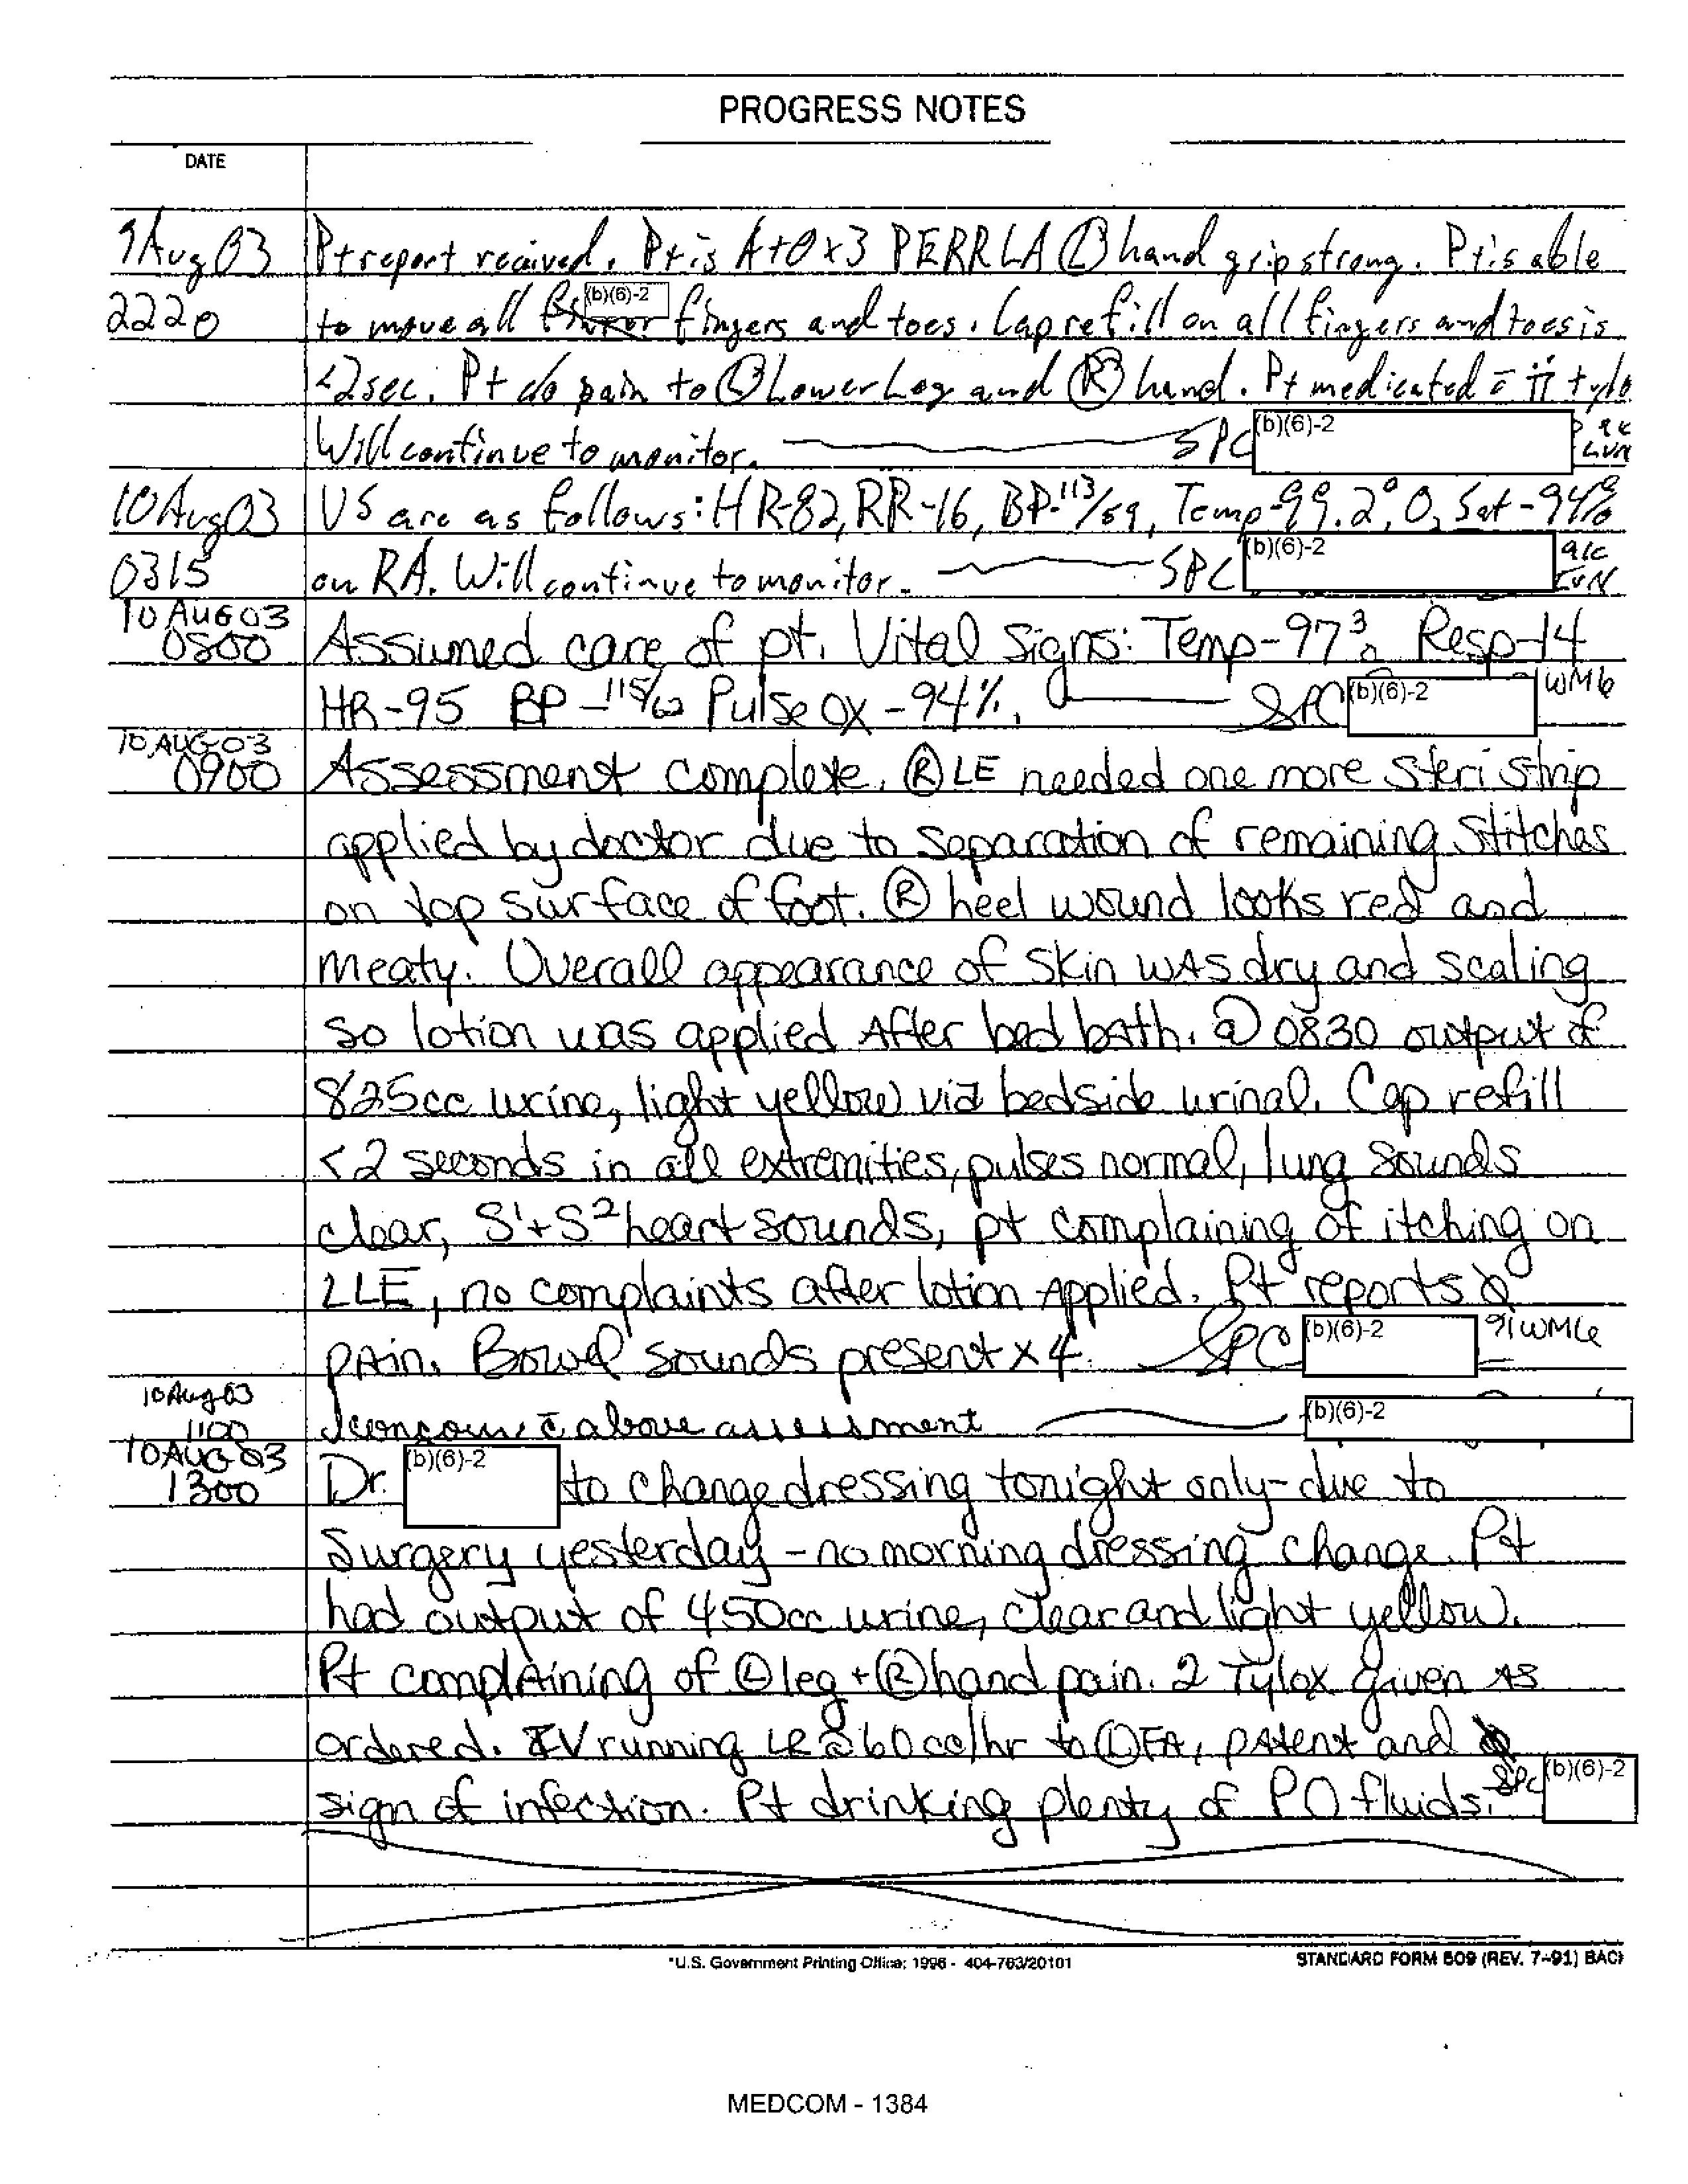 PROGRESS NOTES
DATE
9Aug03 Pt report recived. Pt is A+O x3 PERRLA Ⓛ hand grip strong. Pt is able
2220 to move all (b)(6)-2 fingers and toes. Cap refill on all fingers and toes is
<2sec. Pt c/o pain to Ⓛ Lower Leg and Ⓡ hand. Pt medicated c̄ ii tylo
Will continue to monitor. SPC (b)(6)-2 LVN
10Aug03 VS are as follows: HR-82, RR-16, BP-113/59, Temp-99.2°, O2 Sat-94%
0315 on RA. Will continue to monitor. SPC (b)(6)-2 91C LVN
10 AUG 03
0800 Assumed care of pt. Vital Signs: Temp-97³, Resp-14
HR-95 BP-115/62 Pulse Ox-94%. SPC (b)(6)-2 91WM6
10 AUG 03
0900 Assessment complete. Ⓡ LE needed one more steri strip
applied by doctor due to separation of remaining stitches
on top surface of foot. Ⓡ heel wound looks red and
meaty. Overall appearance of skin was dry and scaling
so lotion was applied After bed bath. @ 0830 output of
825cc urine, light yellow via bedside urinal. Cap refill
<2 seconds in all extremities, pulses normal, lung sounds
clear, S¹+S² heart sounds, pt complaining of itching on
LLE, no complaints after lotion Applied. Pt reports Ø
pain. Bowel sounds present x 4. SPC (b)(6)-2 91WM6
10Aug03
1100 I concour c̄ above assessment (b)(6)-2
10AUG03
1300 Dr. (b)(6)-2 to change dressing tonight only-due to
surgery yesterday - no morning dressing change. Pt
had output of 450cc urine, clear and light yellow.
Pt complaining of Ⓛ leg + Ⓡ hand pain. 2 Tylox given as
ordered. IV running LR @ 60cc/hr to Ⓛ FA, patent and Ø
sign of infection. Pt drinking plenty of PO fluids. SPC (b)(6)-2
*U.S. Government Printing Office: 1996 - 404-763/20101
STANDARD FORM 509 (REV. 7-91) BACK
MEDCOM - 1384